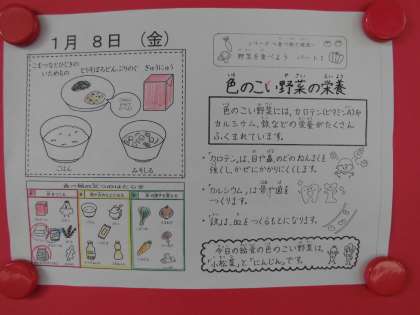 1月 8日 (金)
こまつなとひじきの
いためもの
とりそぼろどんぶりのぐ
ぎゅうにゅう
ごはん
みそしる
野菜を食べよう パート1
色のこい野菜の栄養
色のこい野菜には、カロテン(ビタミンA)や
カルシウム、鉄などの栄養がたくさん
ふくまれています。
・「カロテン」は、目や鼻、のどのねんまくを
強くし、かぜにかかりにくくします。
・「カルシウム」は骨や歯を
つくります。
・「鉄」は、血をつくるもとになります。
今日の給食の色のこい野菜は、
「小松菜」と「にんじん」です。